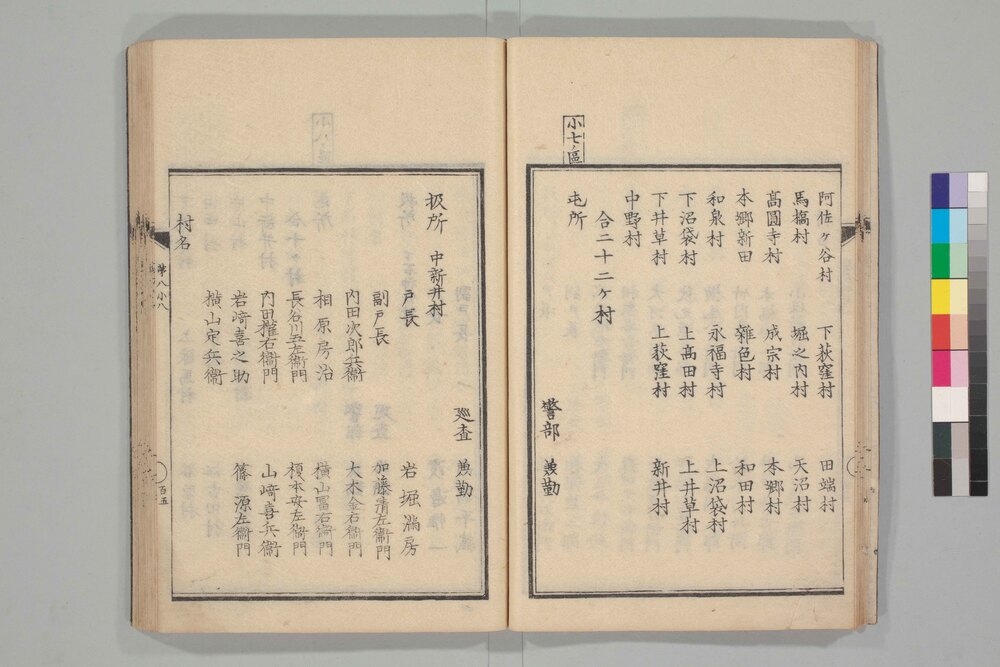 小七區
阿佐ヶ谷村 下荻窪村 田端村
馬橋村 堀之内村 天沼村
高圓寺村 成宗村 本郷村
本郷新田 雜色村 和田村
和泉村 永福寺村 上沼袋村
下沼袋村 上高田村 上井草村
下井草村 上荻窪村 新井村
中野村
合二十二ヶ村
屯所
警部 兼勤
巡査 兼勤
扱所 中新井村
戸長 岩堀滿房
副戸長 加藤清左衞門
内田次郎兵衞 大木金右衞門
相原房治 横山冨右衞門
長谷川五左衞門 榎本安左衞門
内田權右衞門 山崎喜兵衞
岩崎喜之助 篠源左衞門
横山定兵衞
村名
第八小八
百五